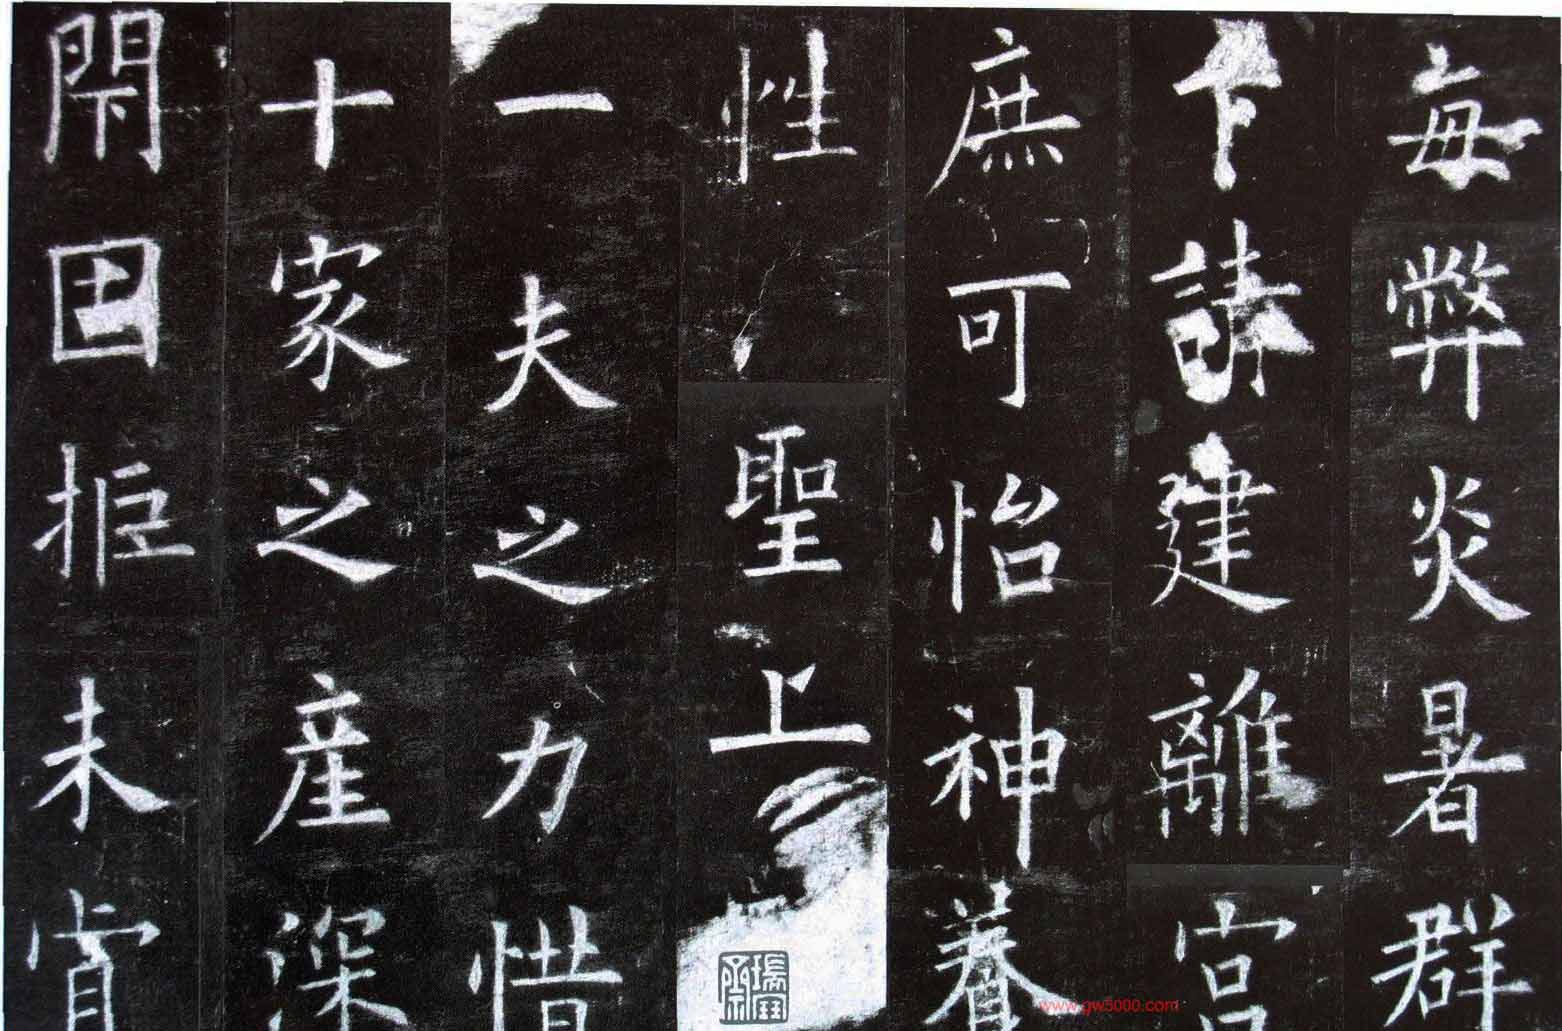 每弊炎暑群
下請建離宮
庶可怡神養
性聖上
一夫之力惜
十家之產深
閇固拒未肯
www.gw5000.com